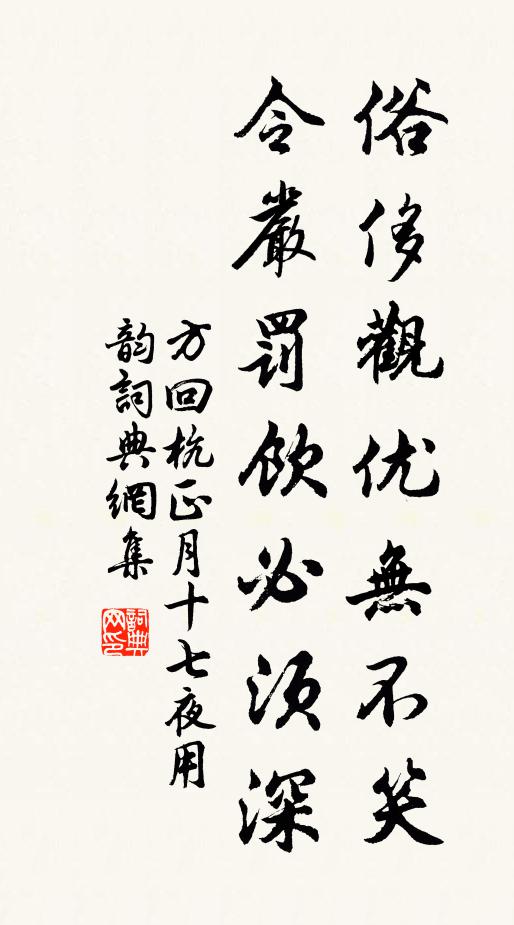 俗侈觀优無不笑
令嚴罰飲必須深
方回杭正月十七夜用
韵詞典網集
詞典網印